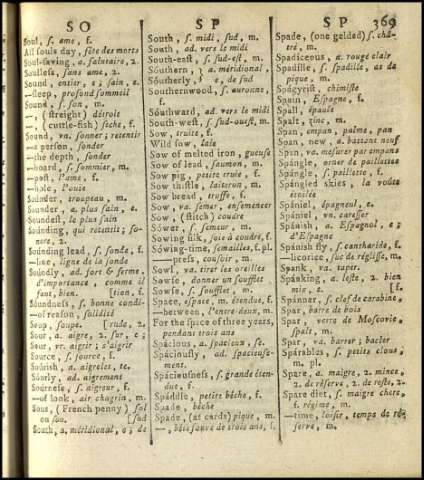 SO
SP
SP 369
Soul, s. ame, f.
All souls day, fête des morts
Soul-saving, a. salutaire, 2.
Soulless, sans ame, 2.
Sound, entier, e; sain, e.
—sleep, profond sommeil
Sound, s. son, m.
—, (streight) détroit
—, (cuttle-fish) seche, f.
Sound, va. sonner; retentir
—a person, sonder
—the depth, sonder
—board, s. sommier, m.
—post, l'ame, f.
—hole, l'ouie
Sounder, troupeau, m.
Sounder, a. plus sain, e.
Soundest, le plus sain
Sounding, qui retentit; so-
nore, 2.
Sounding lead, s. sonde, f.
—line, ligne de la sonde
Soundly, ad. fort & ferme,
d'importance, comme il
faut, bien. [tion, f.
Soundness, s. bonne condi-
—of reason, solidité
Soup, soupe. [rude, 2.
Sour, a. aigre, 2. sur, e;
Sour, vr. aigrir; s'aigrir
Source, s. source, f.
Sourish, a. aigrelet, te.
Sourly, ad. aigrement
Sourness, s. aigreur, f.
—of look, air chagrin, m.
Sous, (French penny) sol
ou sou. [sud
South, a. méridional, e; de
South, s. midi, m.
South, ad. vers le midi
South-east, s. sud-est, m.
Southern, } a. méridional,
Southerly } e, de sud
Southernwood, s. aurosne,
f.
Southward, ad. vers le midi
South-west, s. sud-ouest, m.
Sow, truite, f.
Wild sow, laie
Sow of melted iron, gueuse
Sow of lead, saumon, m.
Sow pig, petite truie, f.
Sow thistle, laiteron, m.
Sow bread, truffe, f.
Sow, va. semer, ensemencer
Sow, (stitch) coudre
Sower, s. semeur, m.
Sowing silk, soie à coudre, f.
Sowing-time, semailles, f. pl.
—press, cousoir, m.
Sowl, va. tirer les oreilles
Sowse, donner un soufflet
Sowse, s. soufflet, m.
Space, espace, m. étendue, f.
—between, l'entre-deux, m.
For the space of three years,
pendant trois ans
Spacious, a. spacieux, se.
Spaciously, ad. spacieuse-
ment.
Spaciousness, s. grande éten-
due, f.
Spaddle, petite bêche, f.
Spade, bêche
Spade, (at cards) pique, m.
—, bête fauve de trois ans, f.
Spade, (one gelded) s. châ-
tré, m.
Spadiceous, a. rouge clair
Spadille, s. spadille, as de
pique, m.
Spagyrist, chimiste
Spain, Espagne, f.
Spall, épaule
Spalt, zinc, m.
Span, empan, palme, pan
Span, new, a. battant neuf
Span, va. mesurer par empans
Spangle, orner de paillettes
Spangle, s. paillette, f.
Spangled skies, la voûte
étoilée
Spaniel, épagneul, e.
Spaniel, vn. caresser
Spanish, a. Espagnol, e;
d'Espagne
Spanish fly, s. cantharide, f.
—licorice, suc de réglisse, m.
Spank, va. taper.
Spanking, a. leste, 2. bien
mis, e. [f.
Spanner, s. clef de carabine,
Spar, barre de bois
Spar, verre de Moscovie,
spalt, m.
Spar, va. barrer; bacler
Sparables, s. petits clous,
m. pl.
Spare, a. maigre, 2. mince,
2. de réserve, 2. de reste, 2.
Spare diet, s. maigre chere,
f. régime, m.
—time, loisir, temps de ré-
serve, m.